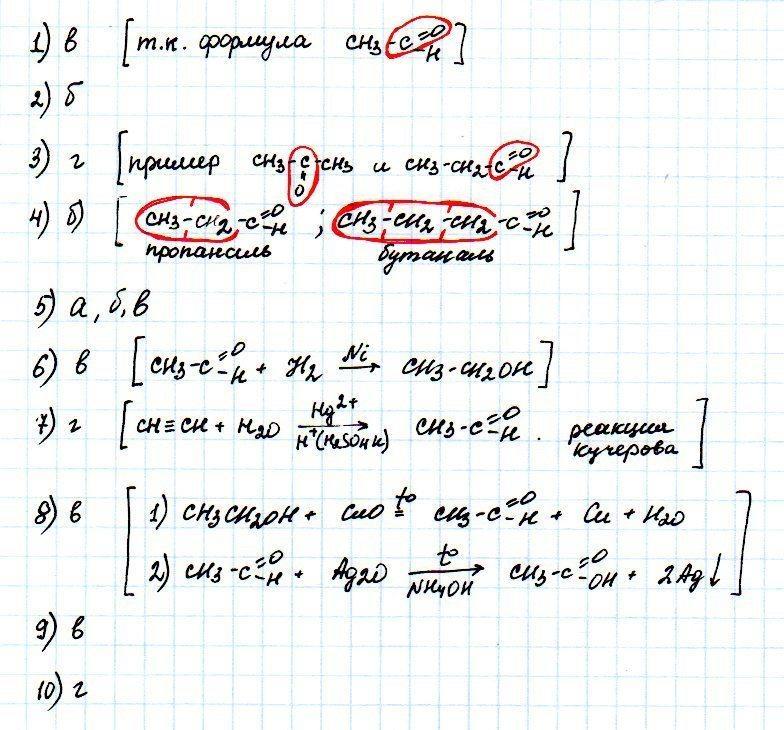 1) в [т.к. формула CH3-C=O-H]
2) б
3) г [пример CH3-C=O-CH3 и CH3-CH2-C=O-H]
4) б) [CH3-CH2-C=O-H ; CH3-CH2-CH2-C=O-H]
пропаналь бутаналь
5) а, б, в
6) в [CH3-C=O-H + H2 Ni→ CH3-CH2OH]
7) г [CH≡CH + H2O Hg2+ H+(H2SO4 к)→ CH3-C=O-H. реакция Кучерова]
8) в [1) CH3CH2OH + CuO t°= CH3-C=O-H + Cu + H2O
2) CH3-C=O-H + Ag2O t° NH4OH→ CH3-C=O-OH + 2Ag↓]
9) в
10) г